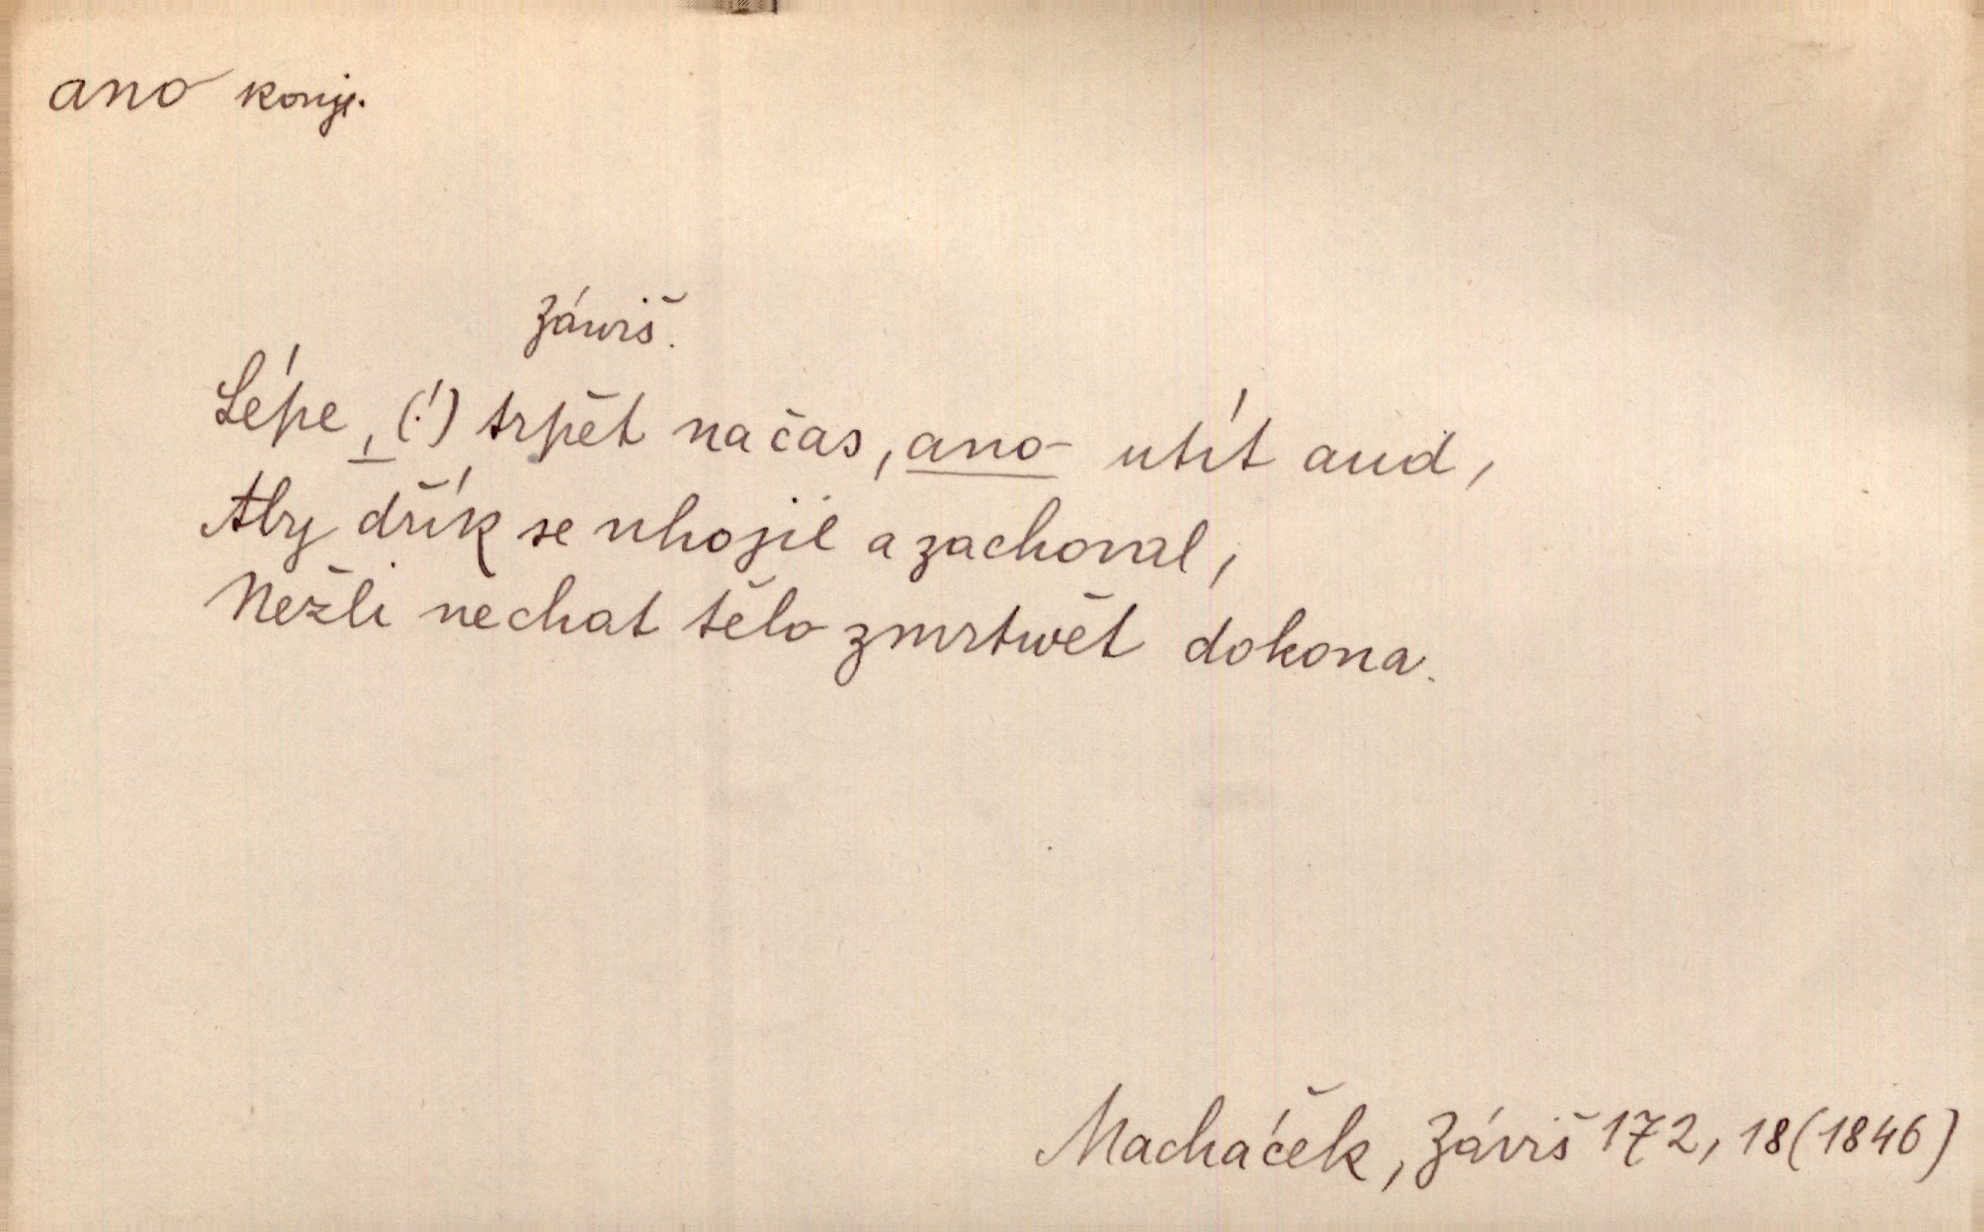 ano konj.
Záwiš.
Lépe, (!) trpět na čas, ano utít aud,
Aby dřík se uhojil a zachoval,
Nežli nechat tělo zmrtwět dokona.
Macháček, Záviš 172, 18 (1846)